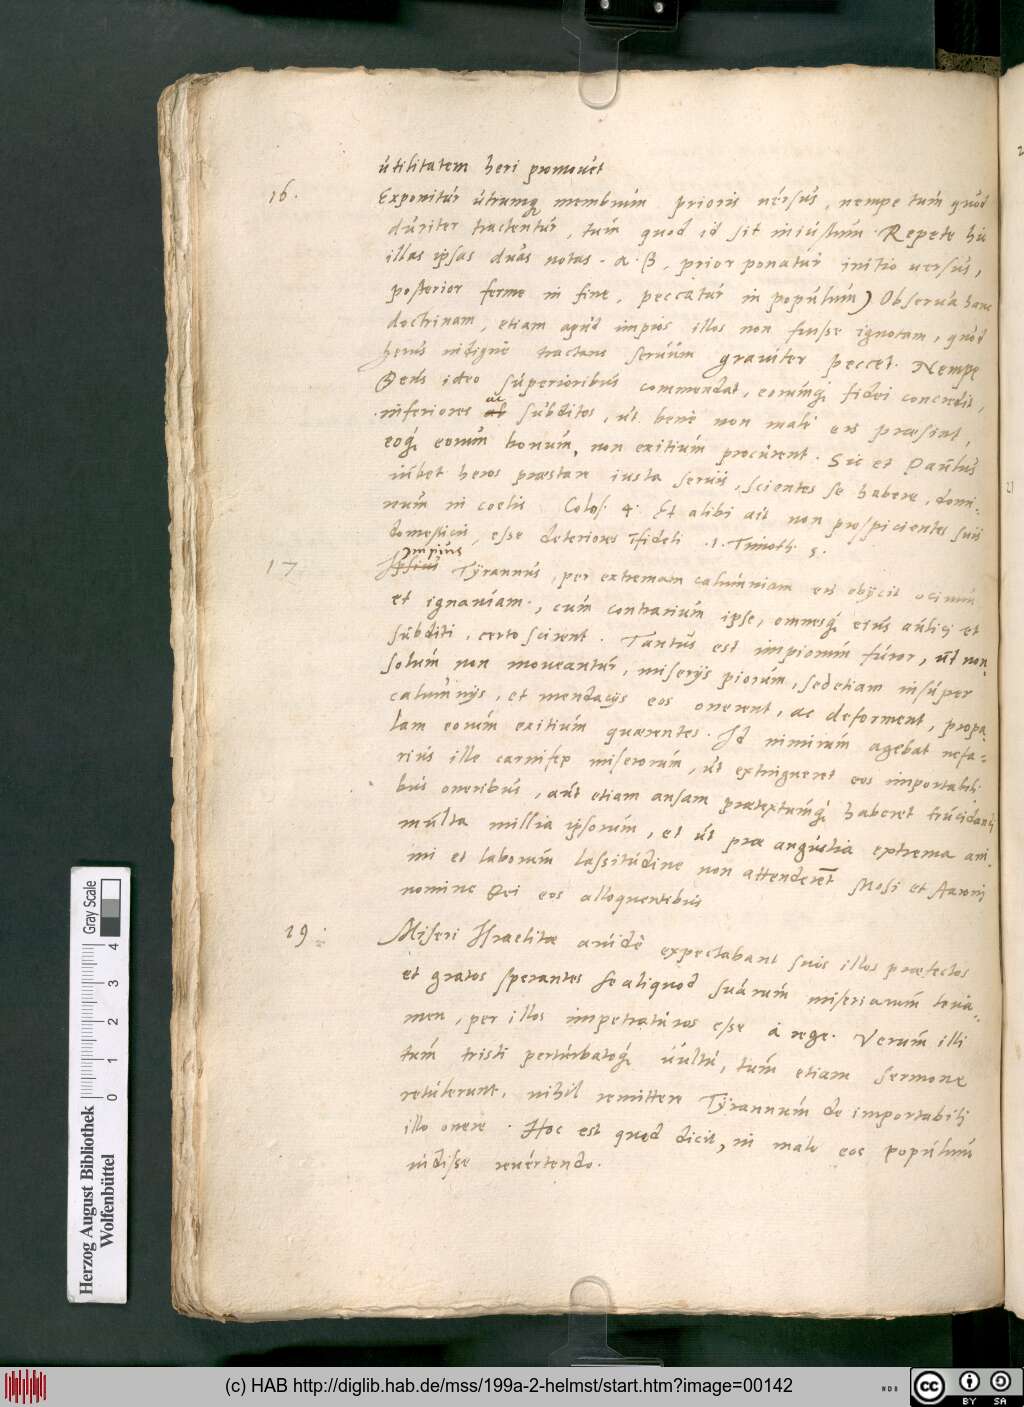 utilitatem heri promouet
16. Exponitur utrumq membrum prioris uersus, nempe tum quod
duriter tractentur, tum quod id sit iniustum. Repete hic
illas ipsas duas notas. α. β. prior ponatur initio uersus,
posterior ferme in fine, peccatur in populum) Obserua hanc
doctrinam, etiam apud impios illos non fuisse ignotam, quod
herus indignè tractans seruum grauiter peccet. Nempe
Deus ideo superioribus commendat, eorumq fidei concredit,
inferiores ac subditos, ut benè non malè eis præsint,
eoq eorum bonum, non exitium procurent. Sic et Paulus
iubet heros præstare iusta seruis, scientes se habere domi-
num in coelis Colos. 4. Et alibi ait non prospicientes suis
domesticis, esse deteriores ifideli .1. Timoth. 5.
17 Impius Tyrannus, per extremam calumniam eis obijcit ocium
et ignauiam, cum contrarium ipse, omnesq eius aulici et
subditi, certo scirent. Tantus est impiorum furor, ut non
solum non moueantur, miserijs piorum, sed etiam insuper
calumnijs, et mendacijs eos onerent, ac deforment, propa-
lam eorum exitium quærentes. Id nimirum agebat nefa-
rius ille carnifex miserorum, ut extingueret eos importabili-
bus oneribus, aut etiam ansam prætextumq haberet trucidandi
multa millia ipsorum, et ut præ angustia extrema ani-
mi et laborum lassitudine non attenderent Mosi et Aaroni
nomine Dei eos alloquentibus
19. Miseri Israelitæ auidè expectabant suos illos præfectos
et gratos sperantes se aliquod suarum miseriarum leua-
men, per illos impetraturos esse à rege. Verum illi
tum tristi perturbatoq uultu, tum etiam sermone
retulerunt, nihil remittere Tyrannum de importabili
illo onere. Hoc est quod dicit, in malo eos populum
uidisse reuertendo.
Herzog August Bibliothek
Wolfenbüttel
0 1 2 3 4
Gray Scale
(c) HAB http://diglib.hab.de/mss/199a-2-helmst/start.htm?image=00142
cc BY SA